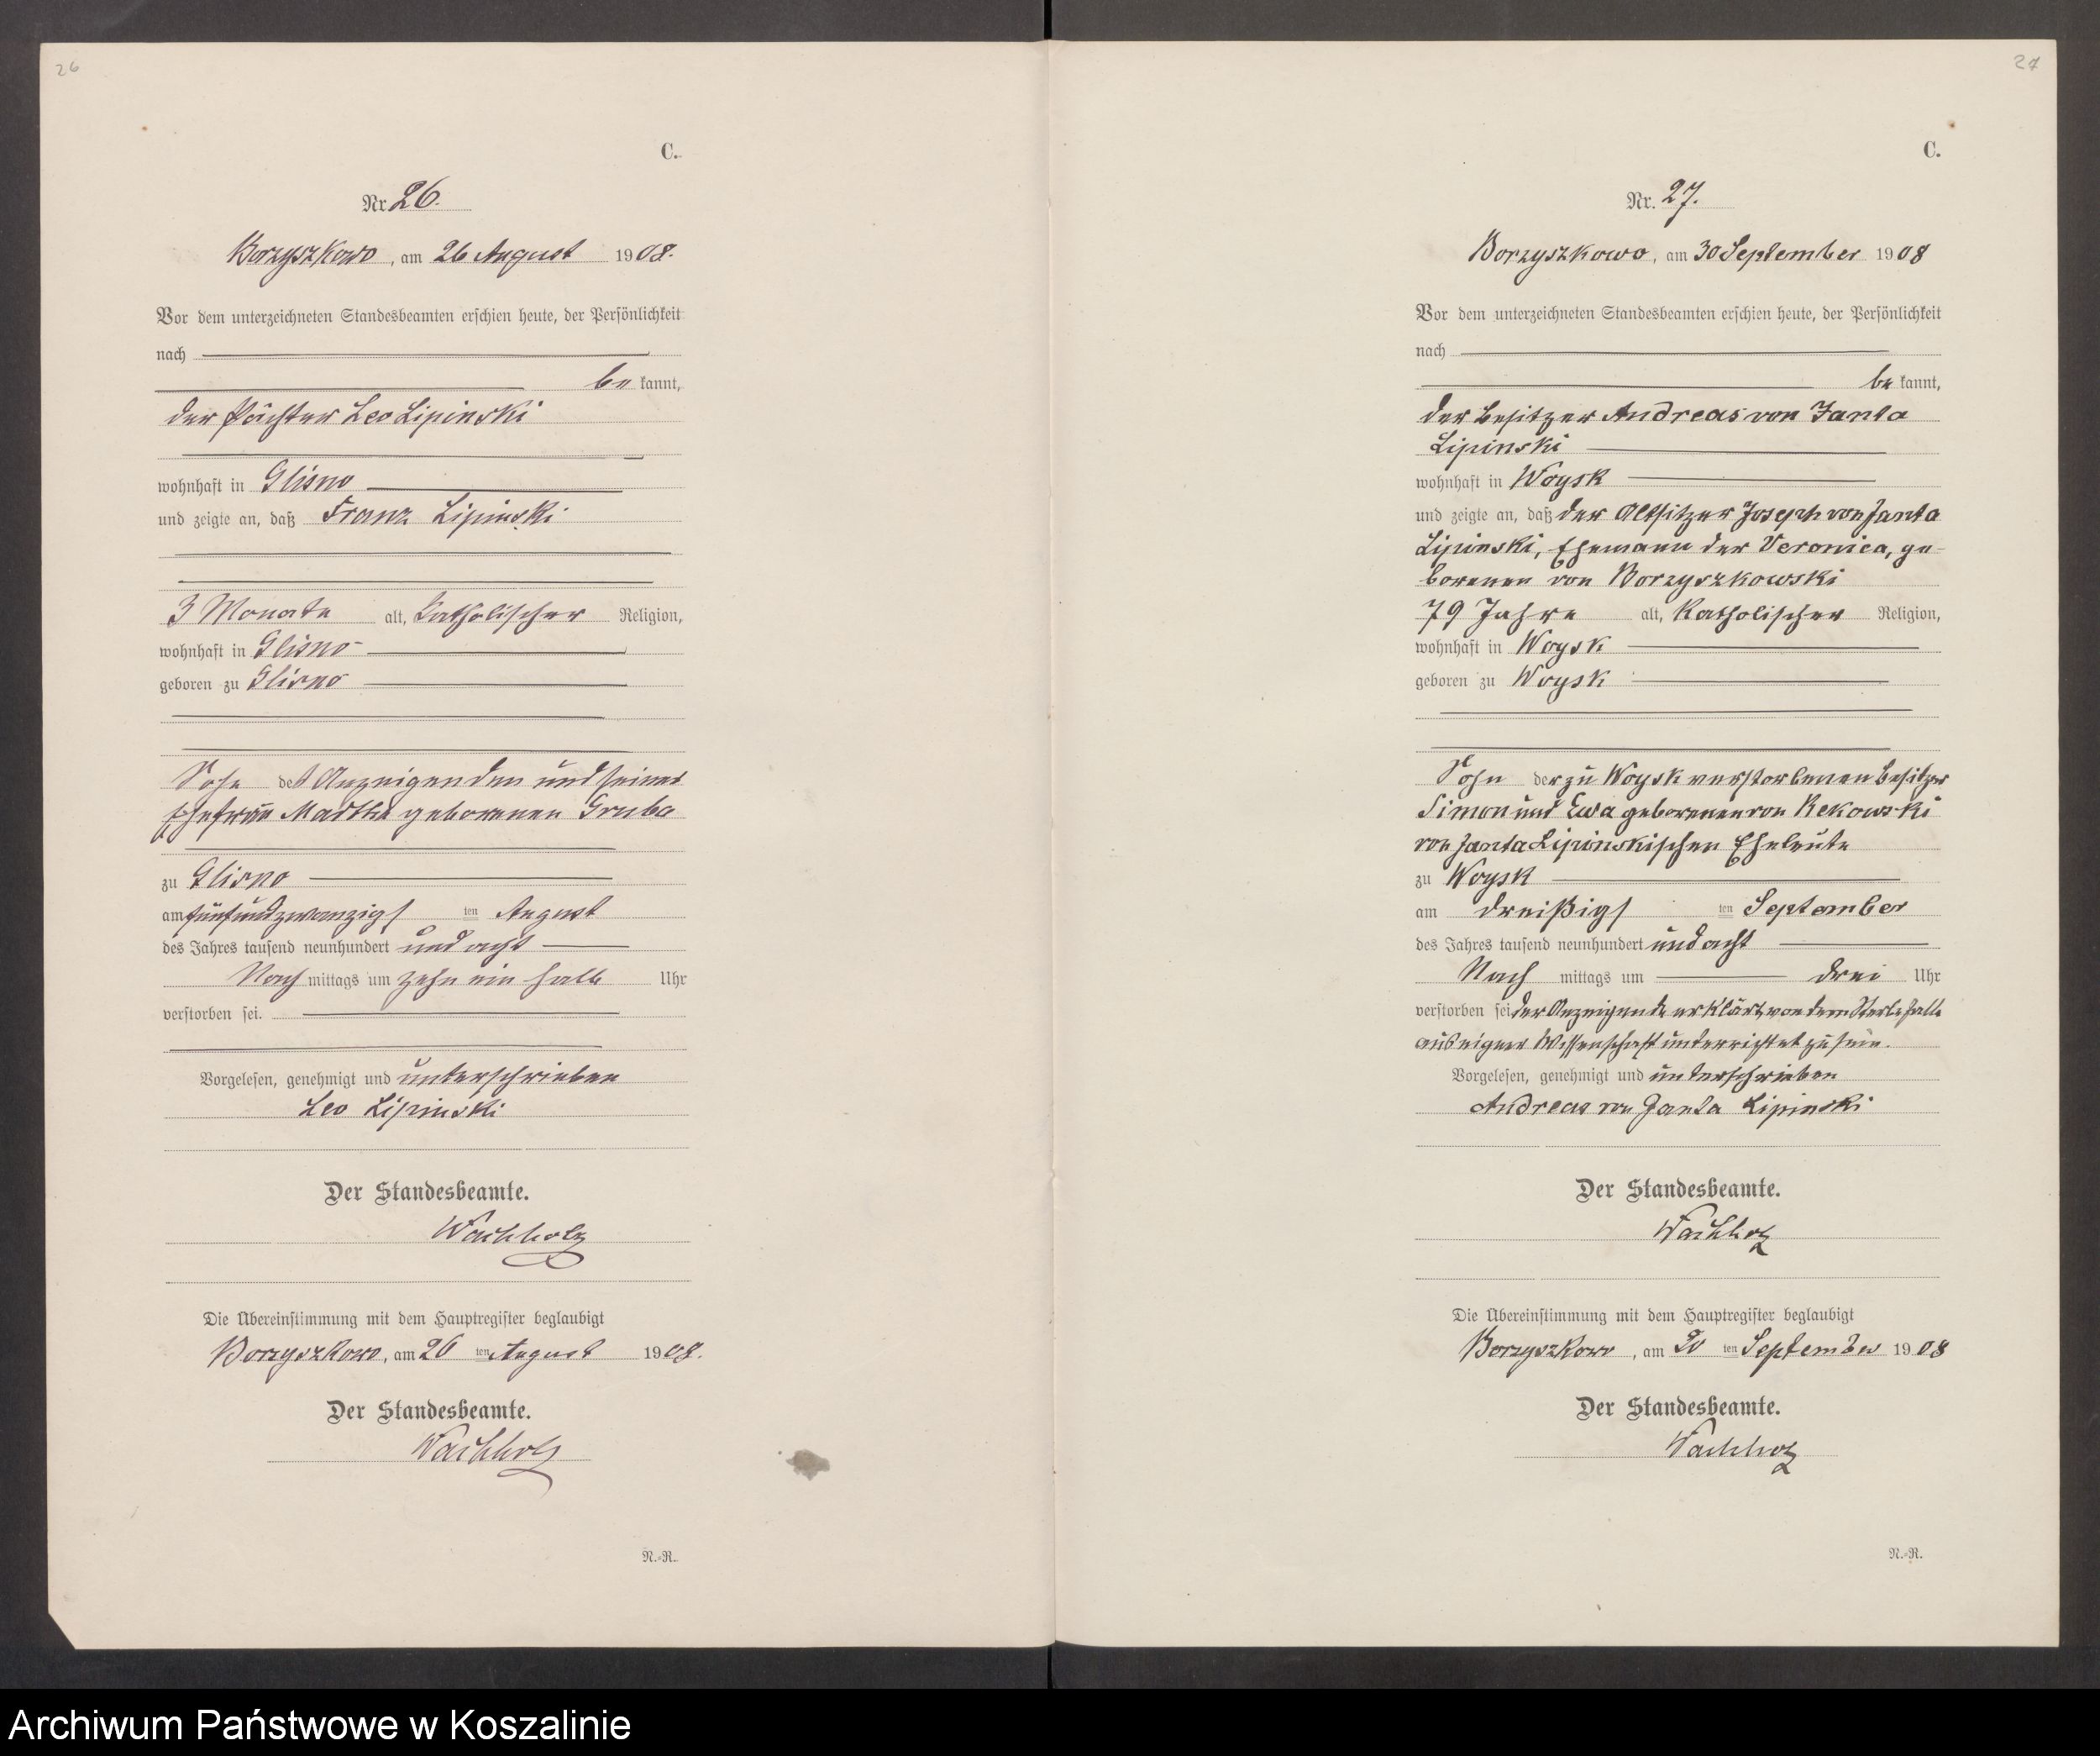 26
C.
Nr 26.
Borzyszkowo, am 26 August 1908.
Vor dem unterzeichneten Standesbeamten erschien heute, der Persönlichkeit
nach
be kannt,
der Pächter Leo Lipinski
wohnhaft in Glisno
und zeigte an, daß Franz Lipinski
3 Monate alt, katholischer Religion,
wohnhaft in Glisno
geboren zu Glisno
Sohn des Anzeigenden und seiner
Ehefrau Martha geborenen Gruba
zu Glisno
am fünfundzwanzigsten August
des Jahres tausend neunhundert und acht
Nach mittags um zehn ein halb Uhr
verstorben sei.
Vorgelesen, genehmigt und unterschrieben
Leo Lipinski
Der Standesbeamte.
Wachholz
Die Übereinstimmung mit dem Hauptregister beglaubigt
Borzyszkowo, am 26 ten August 1908.
Der Standesbeamte.
Wachholz
N.-R.
27
C.
Nr. 27.
Borzyszkowo, am 30 September 1908
Vor dem unterzeichneten Standesbeamten erschien heute, der Persönlichkeit
nach
be kannt,
der Besitzer Andreas von Janta
Lipinski
wohnhaft in Woysk
und zeigte an, daß der Altsitzer Joseph von Janta
Lipinski, Ehemann der Veronica, ge-
borenen von Borzyszkowski
79 Jahre alt, katholischer Religion,
wohnhaft in Woysk
geboren zu Woysk
Sohn der zu Woysk verstorbenen Besitzer
Simon und Ewa geborenen von Rekowski
von Janta Lipinskischen Eheleute
zu Woysk
am dreißigsten September
des Jahres tausend neunhundert und acht
Nach mittags um drei Uhr
verstorben sei der Anzeigende erklärt, von dem Sterbefalle
aus eigner Wissenschaft unterrichtet zu sein.
Vorgelesen, genehmigt und unterschrieben
Andreas von Janta Lipinski
Der Standesbeamte.
Wachholz
Die Übereinstimmung mit dem Hauptregister beglaubigt
Borzyszkowo, am 30 ten September 1908
Der Standesbeamte.
Wachholz
N.-R.
Archiwum Państwowe w Koszalinie